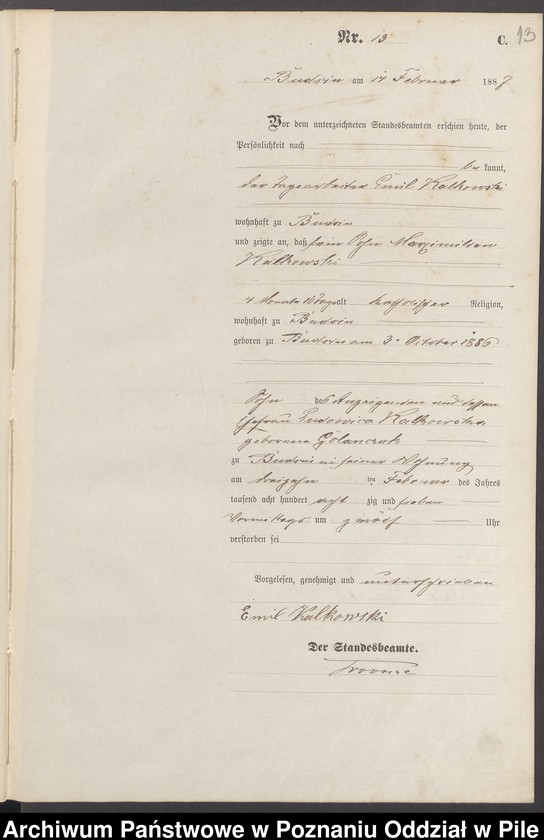 Nr. 13
C. 13
Budsin am 14 Februar 1887
Vor dem unterzeichneten Standesbeamten erschien heute, der
Persönlichkeit nach
be kannt,
der Tagearbeiter Emil Kalkowski
wohnhaft zu Budsin
und zeigte an, daß sein Sohn Maximilian
Kalkowski
4 Monate 10 Tage alt katholischer Religion,
wohnhaft zu Budsin
geboren zu Budsin am 3. October 1886
Sohn des Anzeigenden und dessen
Ehefrau Ludowica Kalkowska
geborene
zu Budsin in seiner Wohnung
am dreizehn ten Februar des Jahres
tausend acht hundert acht zig und sieben
Vormittags um zwölf Uhr
verstorben sei
Vorgelesen, genehmigt und unterschrieben
Emil Kalkowski
Der Standesbeamte.
Archiwum Państwowe w Poznaniu Oddział w Pile